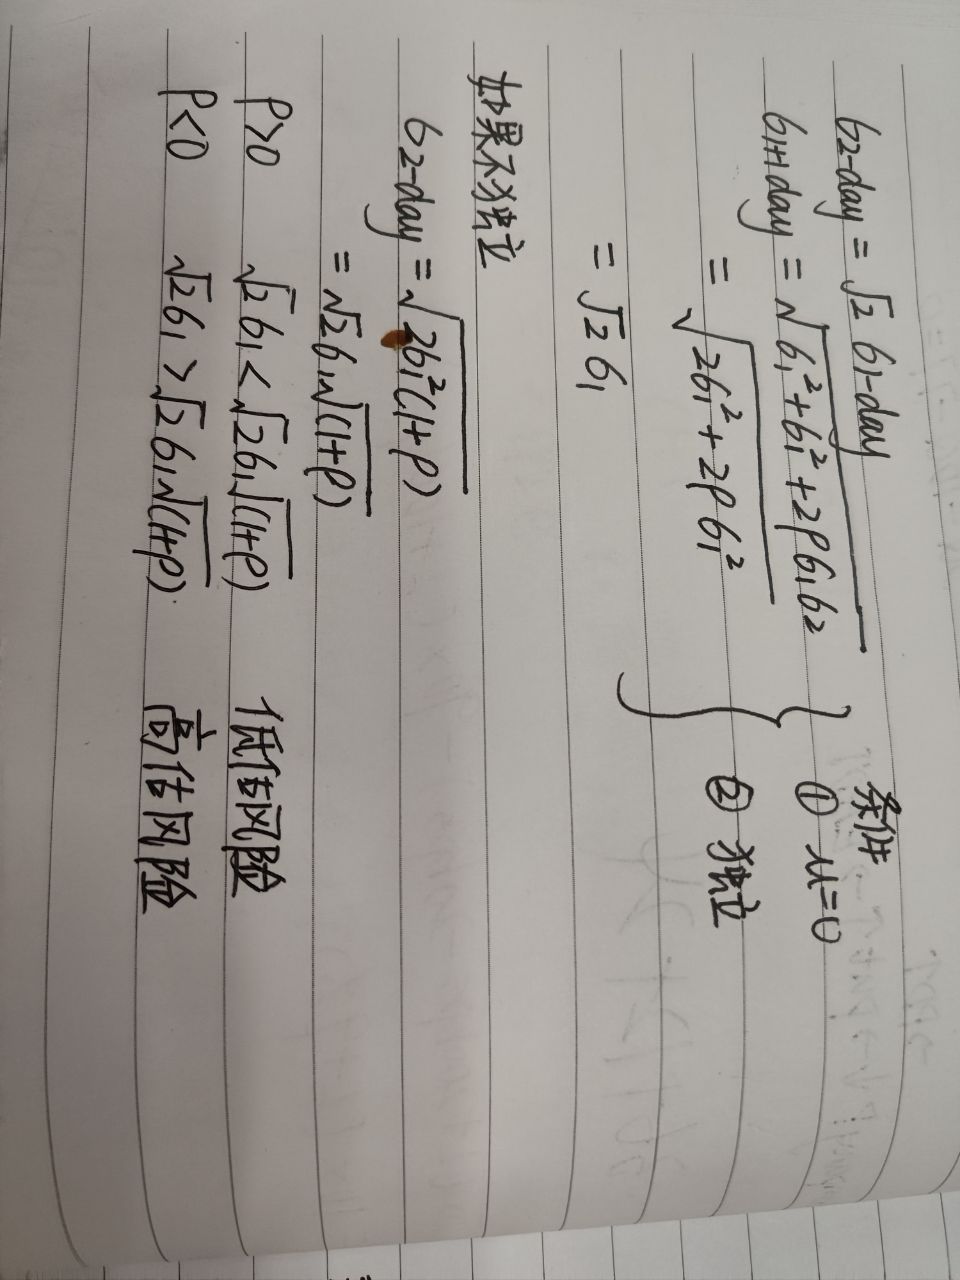 σ2-day = √2 σ1-day
σ1+1day = √(σ1² + σ1² + 2ρσ1σ2)
= √(2σ1² + 2ρσ1²)
= √2 σ1
条件
① μ=0
② 独立
如果不独立
σ2-day = √(2σ1²(1+ρ))
= √2 σ1√(1+ρ)
ρ>0 √2σ1 < √2σ1√(1+ρ) 低估风险
ρ<0 √2σ1 > √2σ1√(1+ρ) 高估风险